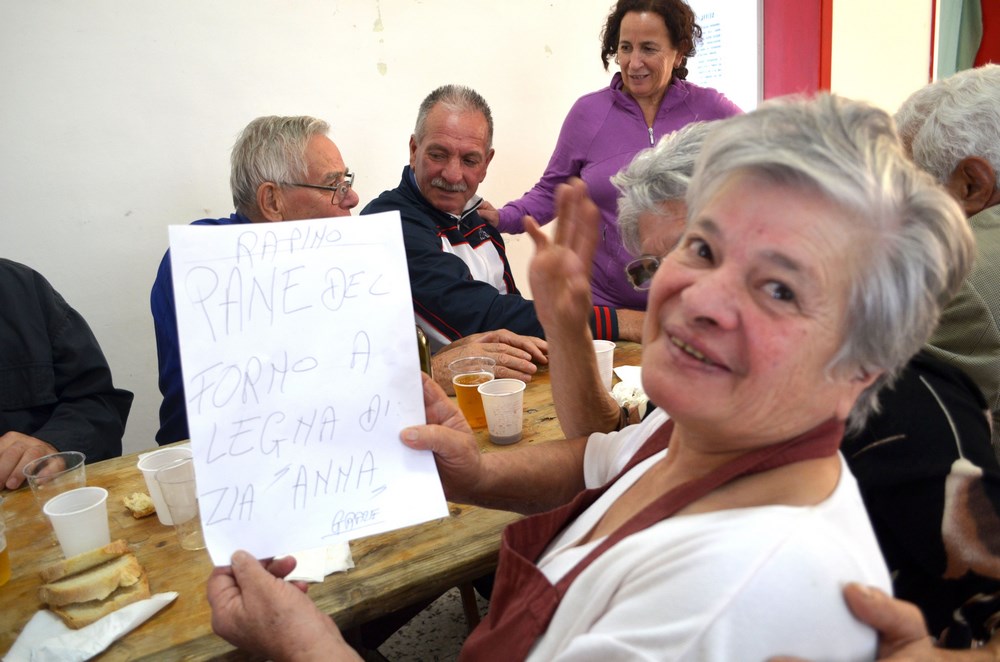 RAPINO
PANE DEL
FORNO A
LEGNA DI
ZIA "ANNA"